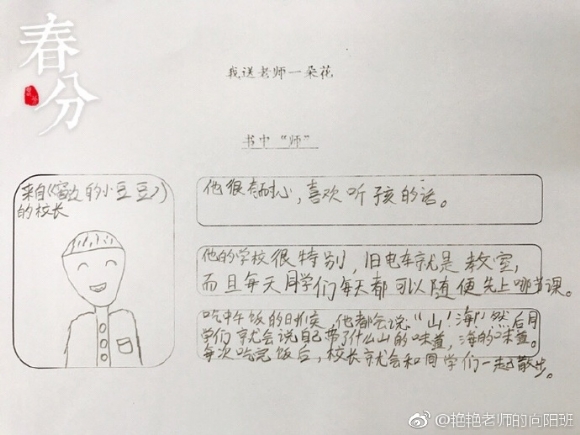 春分
我送老师一朵花
书中“师”
来自《窗边的小豆豆》
的校长
他很有耐心，喜欢听孩的话。
他的学校很特别，旧电车就是教室，
而且每天同学们每天都可以随便先上哪节课。
吃中午饭的时候 他都会说“山！海！”然后同
学们就会说自己带了什么山的味道，海的味道。
每次吃完饭后，校长就会和同学们一起散步。
@艳艳老师的向阳班